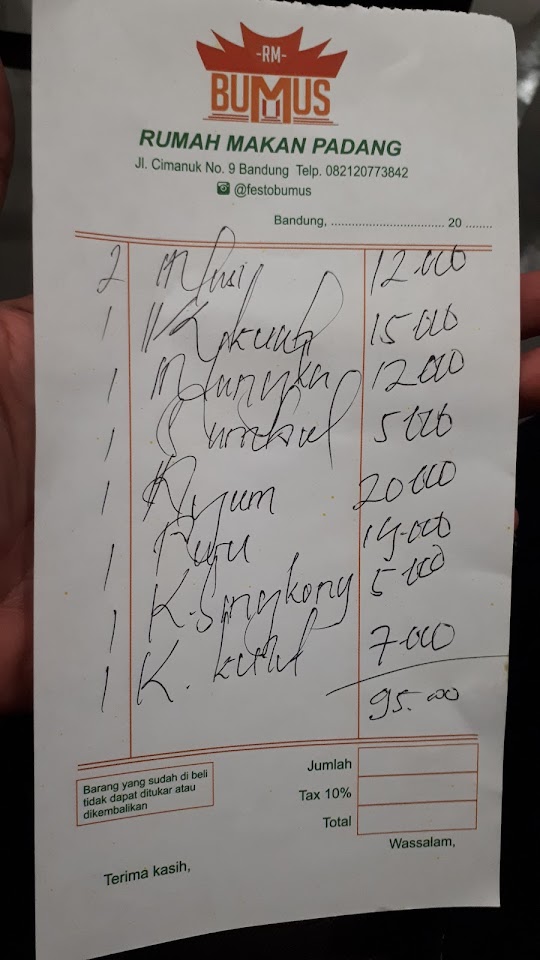 -RM-
BUMUS
RUMAH MAKAN PADANG
Jl. Cimanuk No. 9 Bandung Telp. 082120773842
@festobumus
Bandung, ................................... 20 ........
2 Nasi 12.000
1 15.000
1 Nangka 12.000
1 5.000
1 Ayam 20.000
1 19.000
1 K. Singkong 5.000
1 K. 7.000
95.000
Jumlah
Tax 10%
Total
Barang yang sudah di beli
tidak dapat ditukar atau
dikembalikan
Wassalam,
Terima kasih,